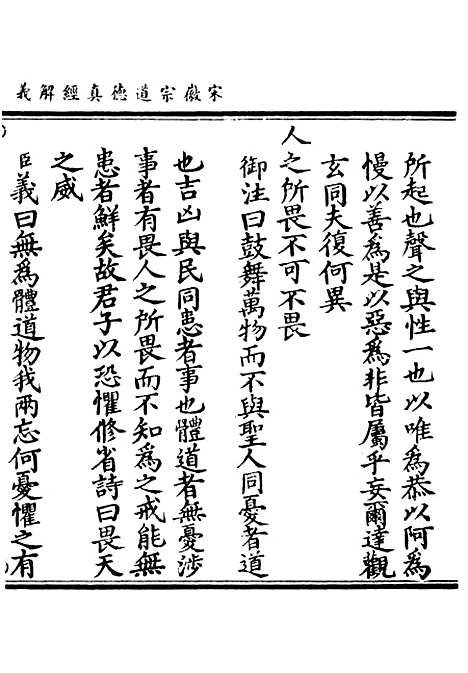 宋徽宗道德真經解義
所起也聲之與性一也以唯為恭以阿為
慢以善為是以惡為非皆屬乎妄爾達觀
玄同夫復何異
人之所畏不可不畏
御注曰鼓舞萬物而不與聖人同憂者道
也吉凶與民同患者事也體道者無憂涉
事者有畏人之所畏而不知為之戒能無
患者鮮矣故君子以恐懼修省詩曰畏天
之威
臣義曰無為體道物我兩忘何憂懼之有